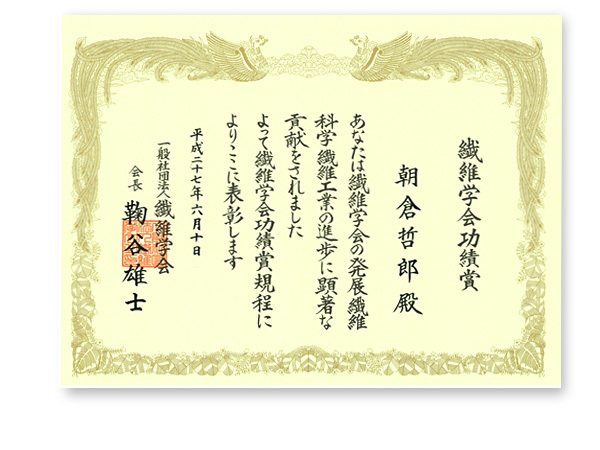 繊維学会功績賞
朝倉哲郎殿
あなたは繊維学会の発展繊維
科学繊維工業の進歩に顕著な
貢献をされました
よって繊維学会功績賞規程に
よりここに表彰します
平成二十七年六月十日
一般社団法人繊維学会
会長 鞠谷雄士